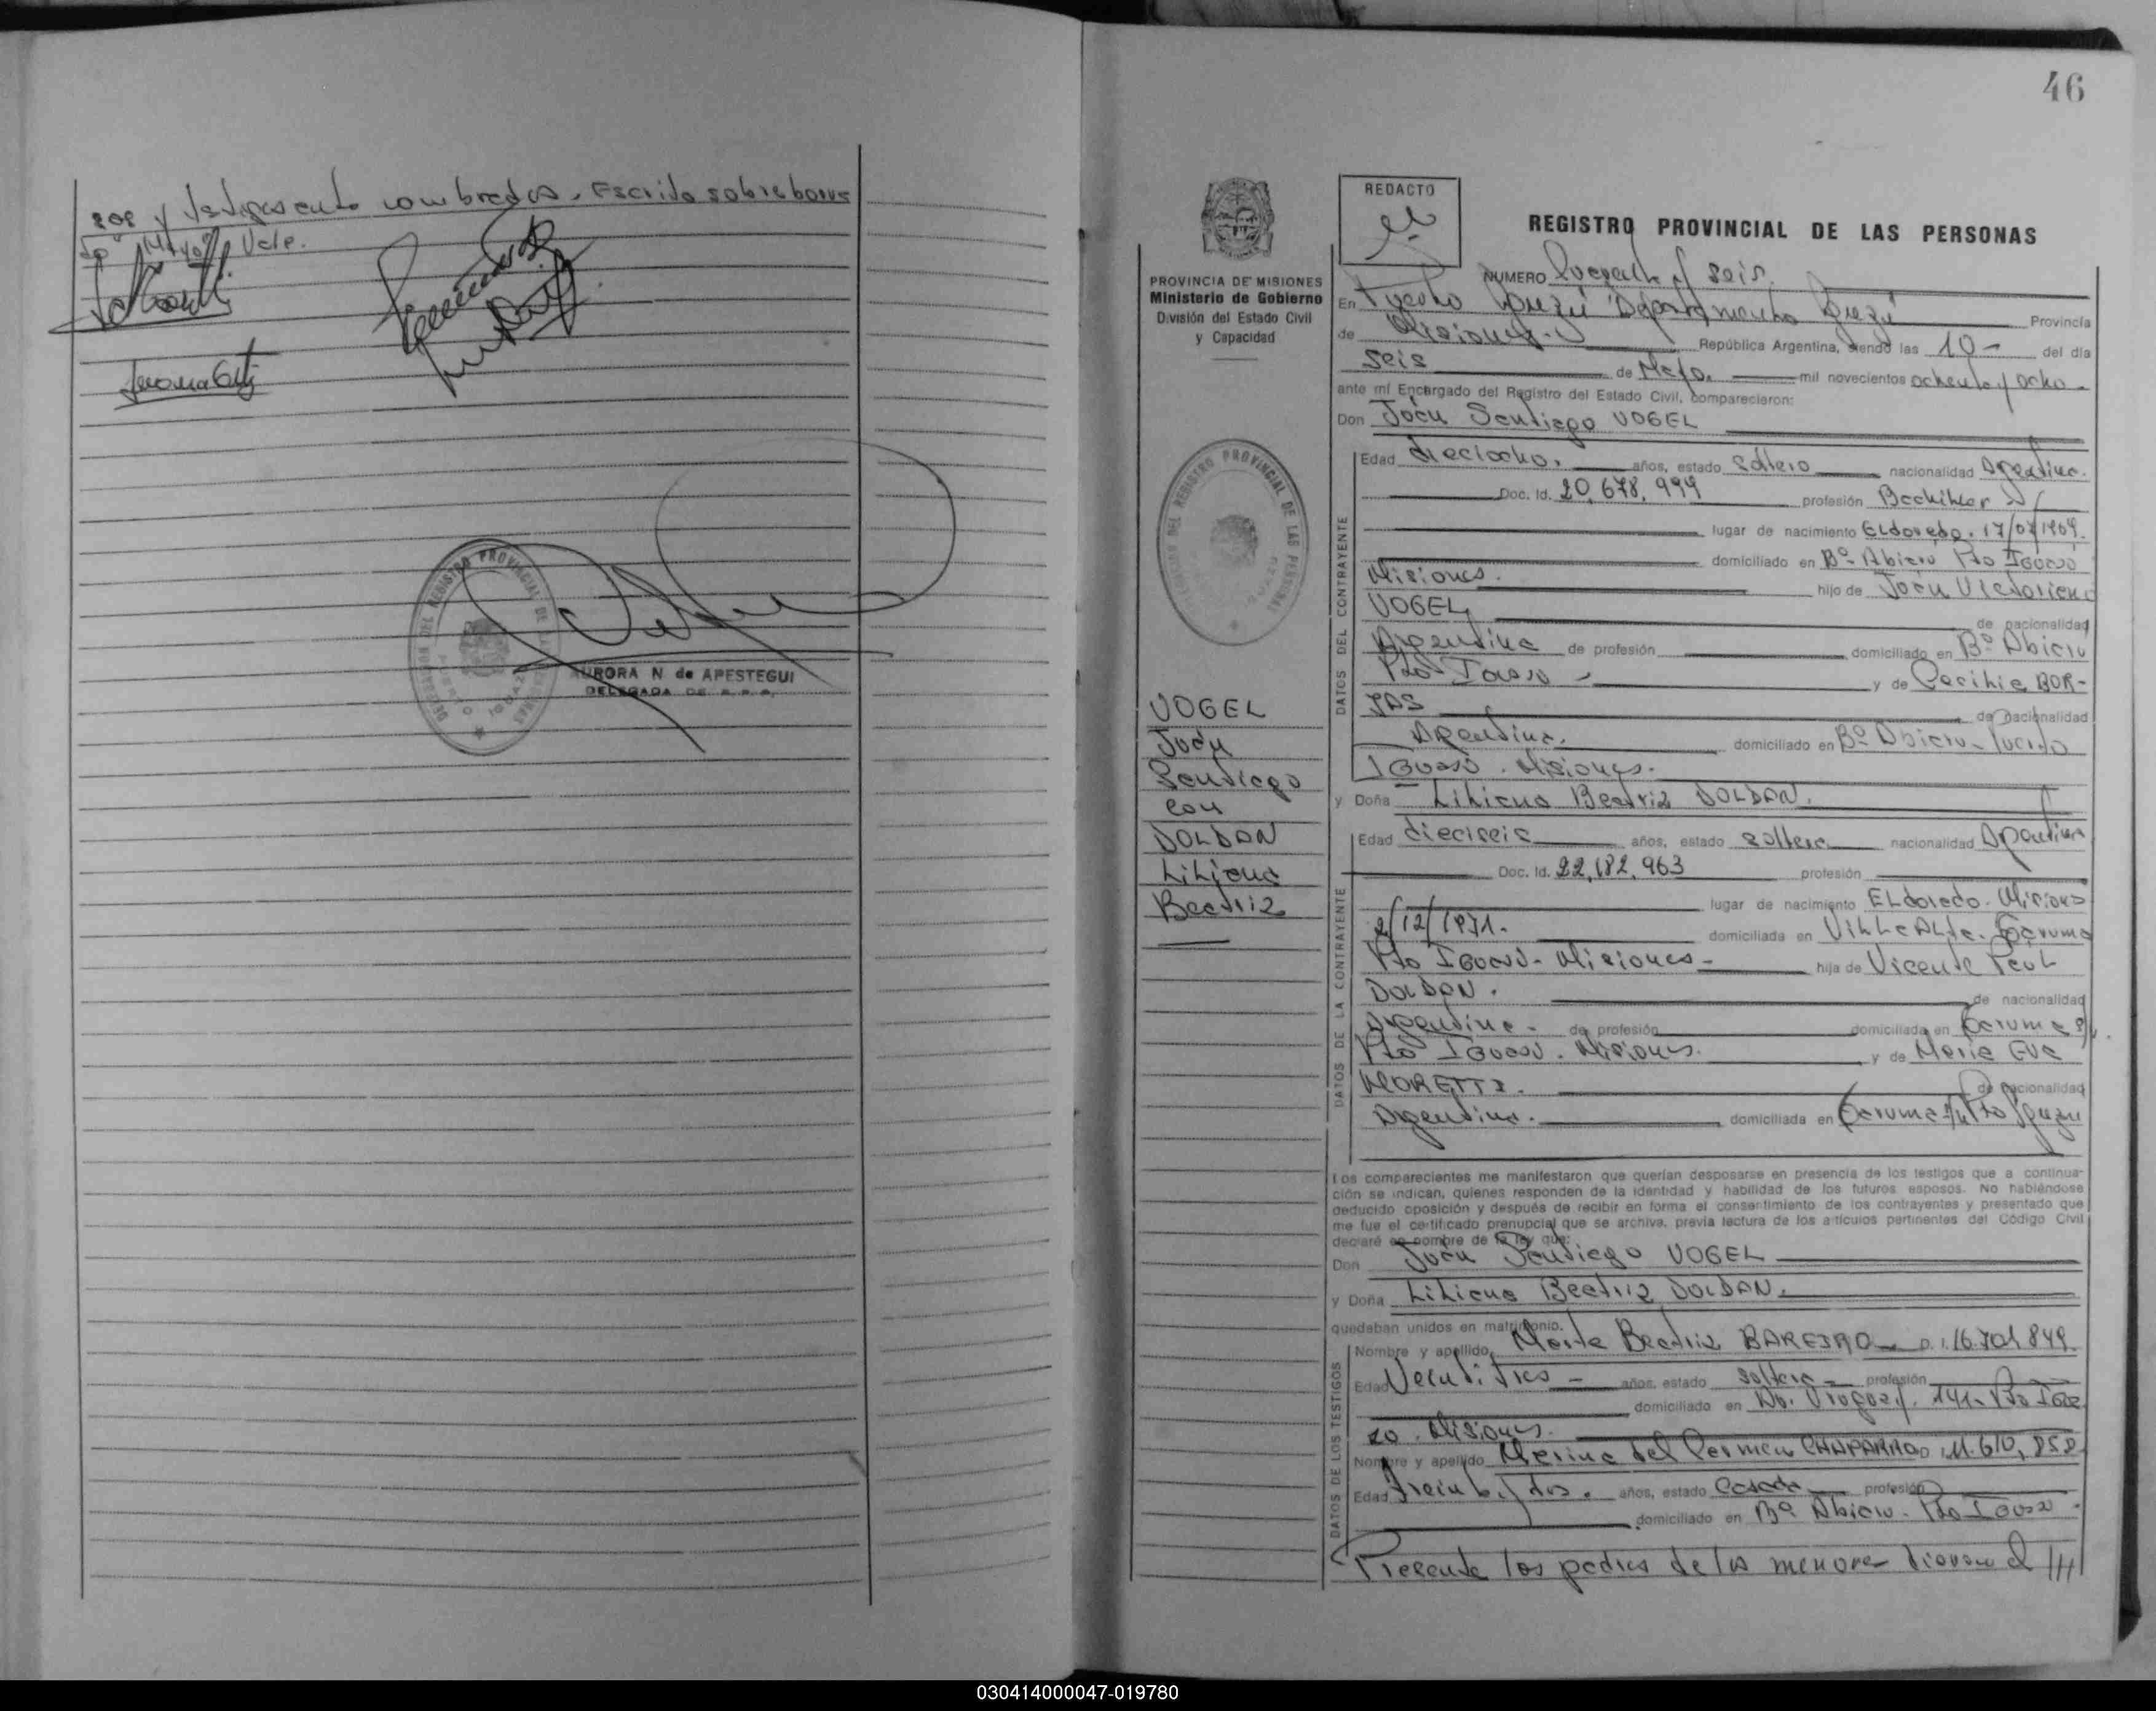 y testigos ante nombrados. Escrito sobre borra
"Mayo" Vale.
AURORA N de APESTEGUI
DELEGADA DE R.P.P.
46
REDACTO
REGISTRO PROVINCIAL DE LAS PERSONAS
PROVINCIA DE MISIONES
Ministerio de Gobierno
División del Estado Civil
y Capacidad
NUMERO Cuarenta y seis.
En Puerto Iguazú Departamento Iguazú Provincia
de Misiones República Argentina, siendo las 10 del día
seis de Mayo. mil novecientos ochenta y ocho
ante mí Encargado del Registro del Estado Civil, comparecieron:
Don Juan Santiago VOGEL
Edad dieciocho. años, estado soltero nacionalidad Argentina.
Doc. Id. 20.678.999 profesión Bachiller
lugar de nacimiento Eldorado.
domiciliado en Bº Pto Iguazú
Misiones. hijo de Juan Victoriano
VOGEL de nacionalidad
Argentina de profesión domiciliado en Bº
Pto Iguazú y de Cecilia BOR-
JAS de nacionalidad
Argentina. domiciliado en Bº Puerto
Iguazú. Misiones.
y Doña Liliana Beatriz DOLDAN.
Edad dieciseis años, estado soltera nacionalidad Argentina
Doc. Id. 22.182.963 profesión
lugar de nacimiento Eldorado. Misiones
2/12/1971. domiciliada en Villa Alta.
Pto Iguazú - Misiones - hija de Vicente Paul
DOLDAN. de nacionalidad
Argentina. de profesión domiciliada en
Pto Iguazú. Misiones. y de Maria Eva
MORETTI. de nacionalidad
Argentina. domiciliada en Pto Iguazu
DATOS DEL CONTRAYENTE
DATOS DE LA CONTRAYENTE
VOGEL
Juan
Santiago
con
DOLDAN
Liliana
Beatriz
Los comparecientes me manifestaron que querían desposarse en presencia de los testigos que a continua-
ción se indican, quienes responden de la identidad y habilidad de los futuros esposos. No habiéndose
deducido oposición y después de recibir en forma el consentimiento de los contrayentes y presentado que
me fue el certificado prenupcial que se archiva, previa lectura de los artículos pertinentes del Código Civil
declaré en nombre de la ley que:
Don Juan Santiago VOGEL
y Doña Liliana Beatriz DOLDAN.
quedaban unidos en matrimonio.
Nombre y apellido Marta Beatriz BAREIRO D.I. 16.701.849
Edad Veintitres años, estado soltera profesión
domiciliado en Av. Uruguay. 141 - Pto Igua
zu. Misiones.
Nombre y apellido Marina del Carmen CHAPARRO D.I. 11.610.858
Edad treinta y dos. años, estado Casada profesión
domiciliado en Bº Pto Iguazu
DATOS DE LOS TESTIGOS
Presente los padres de los menores dieron el ///
030414000047-019780